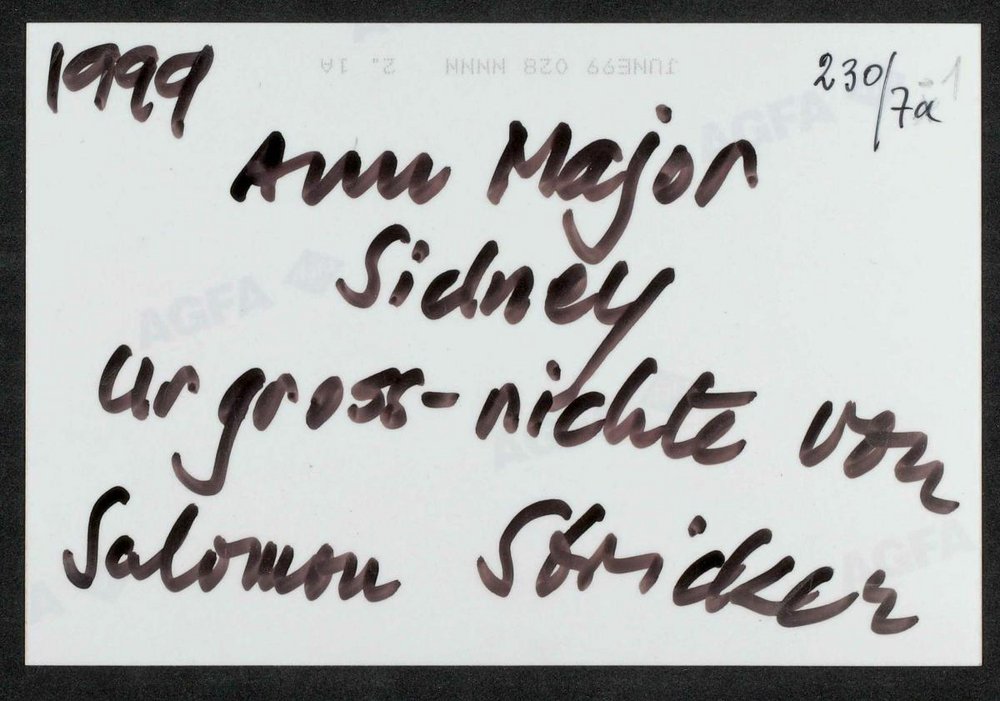 1999
230/7a -1
JUNE99 028 NNNN 2. 1A
Ann Major
Sidney
Urgross-nichte von
Salomon Stricker
AGFA
AGFA
AGFA
AGFA